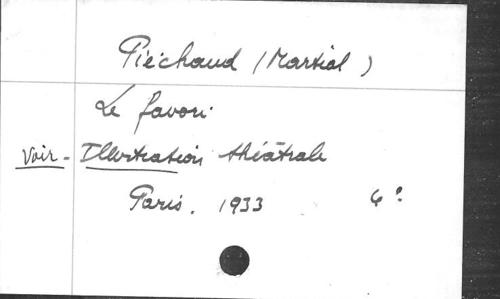 Piéchaud (Martial)
Le favori
Voir - Illustration théâtrale
Paris. 1933 4°